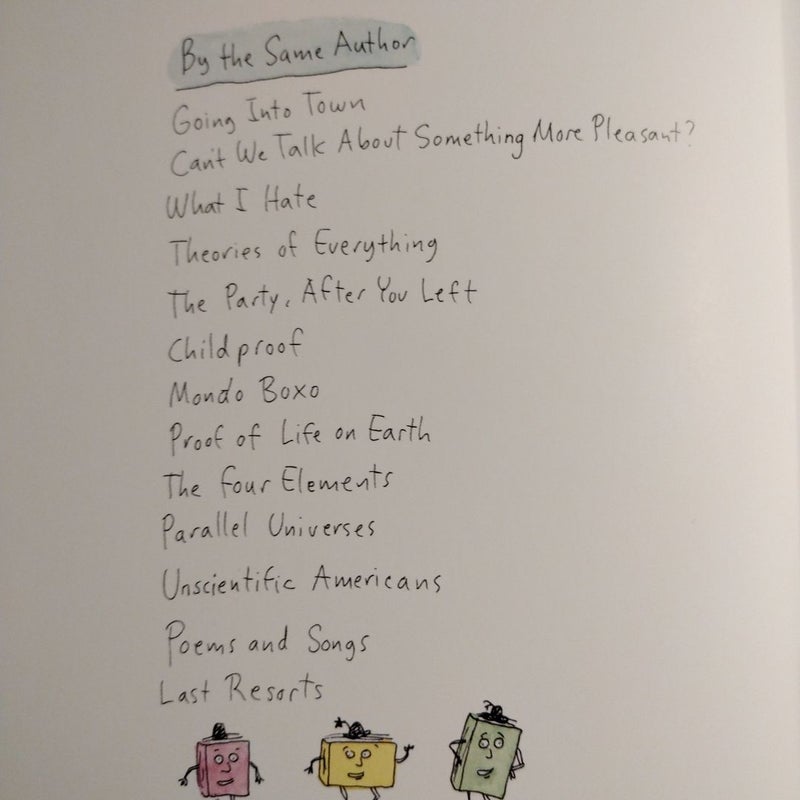 By the Same Author
Going Into Town
Can't We Talk About Something More Pleasant?
What I Hate
Theories of Everything
The Party, After You Left
Childproof
Mondo Boxo
Proof of Life on Earth
The Four Elements
Parallel Universes
Unscientific Americans
Poems and Songs
Last Resorts